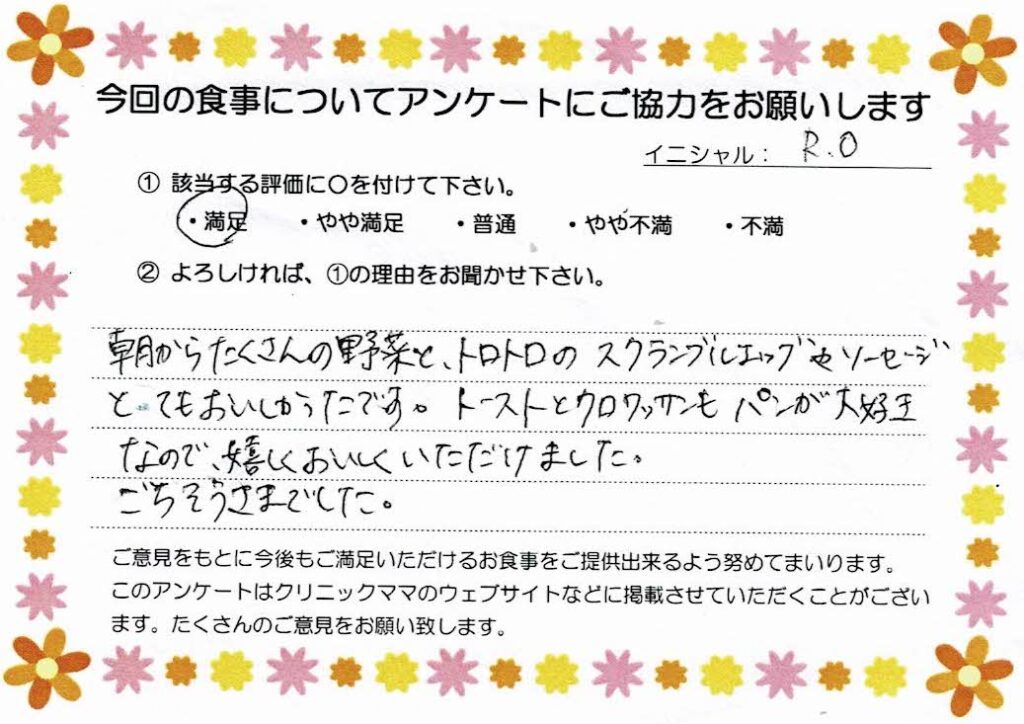 今回の食事についてアンケートにご協力をお願いします
イニシャル： R.O
① 該当する評価に〇を付けて下さい。
・満足 ・やや満足 ・普通 ・やや不満 ・不満
② よろしければ、①の理由をお聞かせ下さい。
朝からたくさんの野菜と、トロトロの スクランブルエッグやソーセージ
とってもおいしかったです。 トーストとクロワッサンも パンが大好き
なので、嬉しくおいしくいただけました。
ごちそうさまでした。
ご意見をもとに今後もご満足いただけるお食事をご提供出来るよう努めてまいります。
このアンケートはクリニックママのウェブサイトなどに掲載させていただくことがござい
ます。たくさんのご意見をお願い致します。